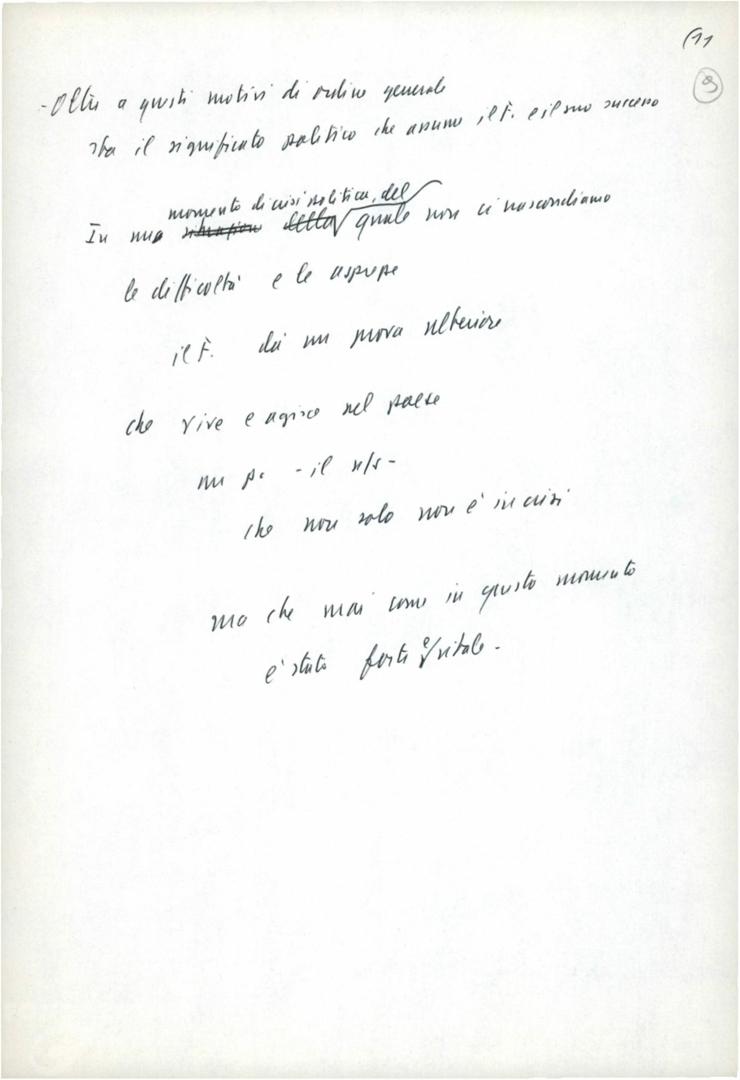 (11
9
- Oltre a questi motivi di ordine generale
sta il significato politico che assume il F. e il suo successo
momento di crisi politica, del
In una situazione della quale non ci nascondiamo
le difficoltà e le asprezze
il F. dà un prova ulteriore
che vive e agisce nel paese
un p. - il n/s -
che non solo non è in crisi
ma che mai come in questo momento
è stato forte e vitale -